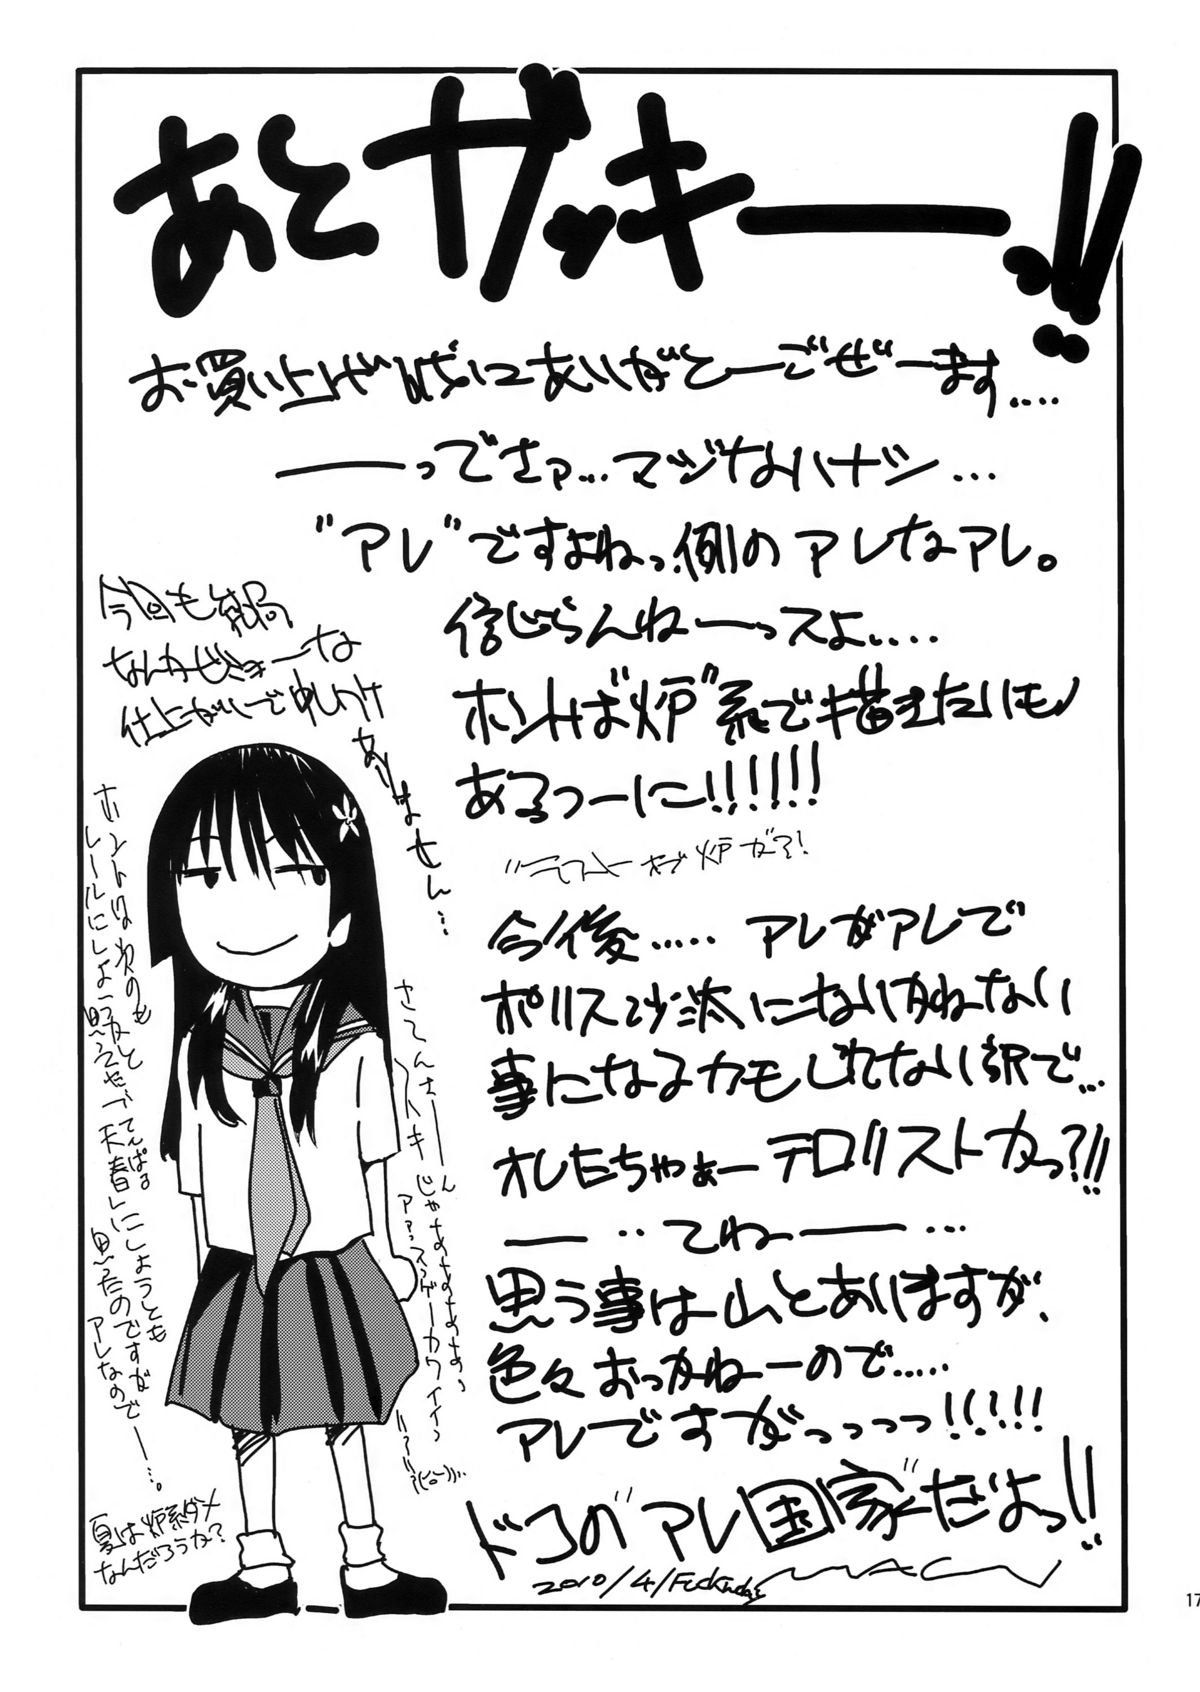 あとガッキー!!
お買い上げ誠にありがとーごぜーます....
——ってさァ...マジなハナシ...
"アレ"ですよねっ、例のアレなアレ。
信じらんねーっスよ....
ホントは"炉"系で描きたいモノ
あるっつーに!!!!!!
今後.....アレがアレで
ポリス沙汰になりかねない
事になるカモしれない訳で...
オレたちゃぁーテロリストかっ?!!
——‥てねー——...
思う事は山とありますが、
色々おっかねーので.....
アレですがっっっっ!!!!!
ドコの"アレ国家"だよっ!!
2010/4/
今回も結局
なんかびみょーな
仕上がりで申し訳
ありません...
ホントは次のも
レールにしようかと
天春にしようとも
思ったのですが
アレなのでー...。
夏は炉系ダメ
なんだろうか?
さてんさーん
じゃなななななな、
スンゲーカワイイっ
17